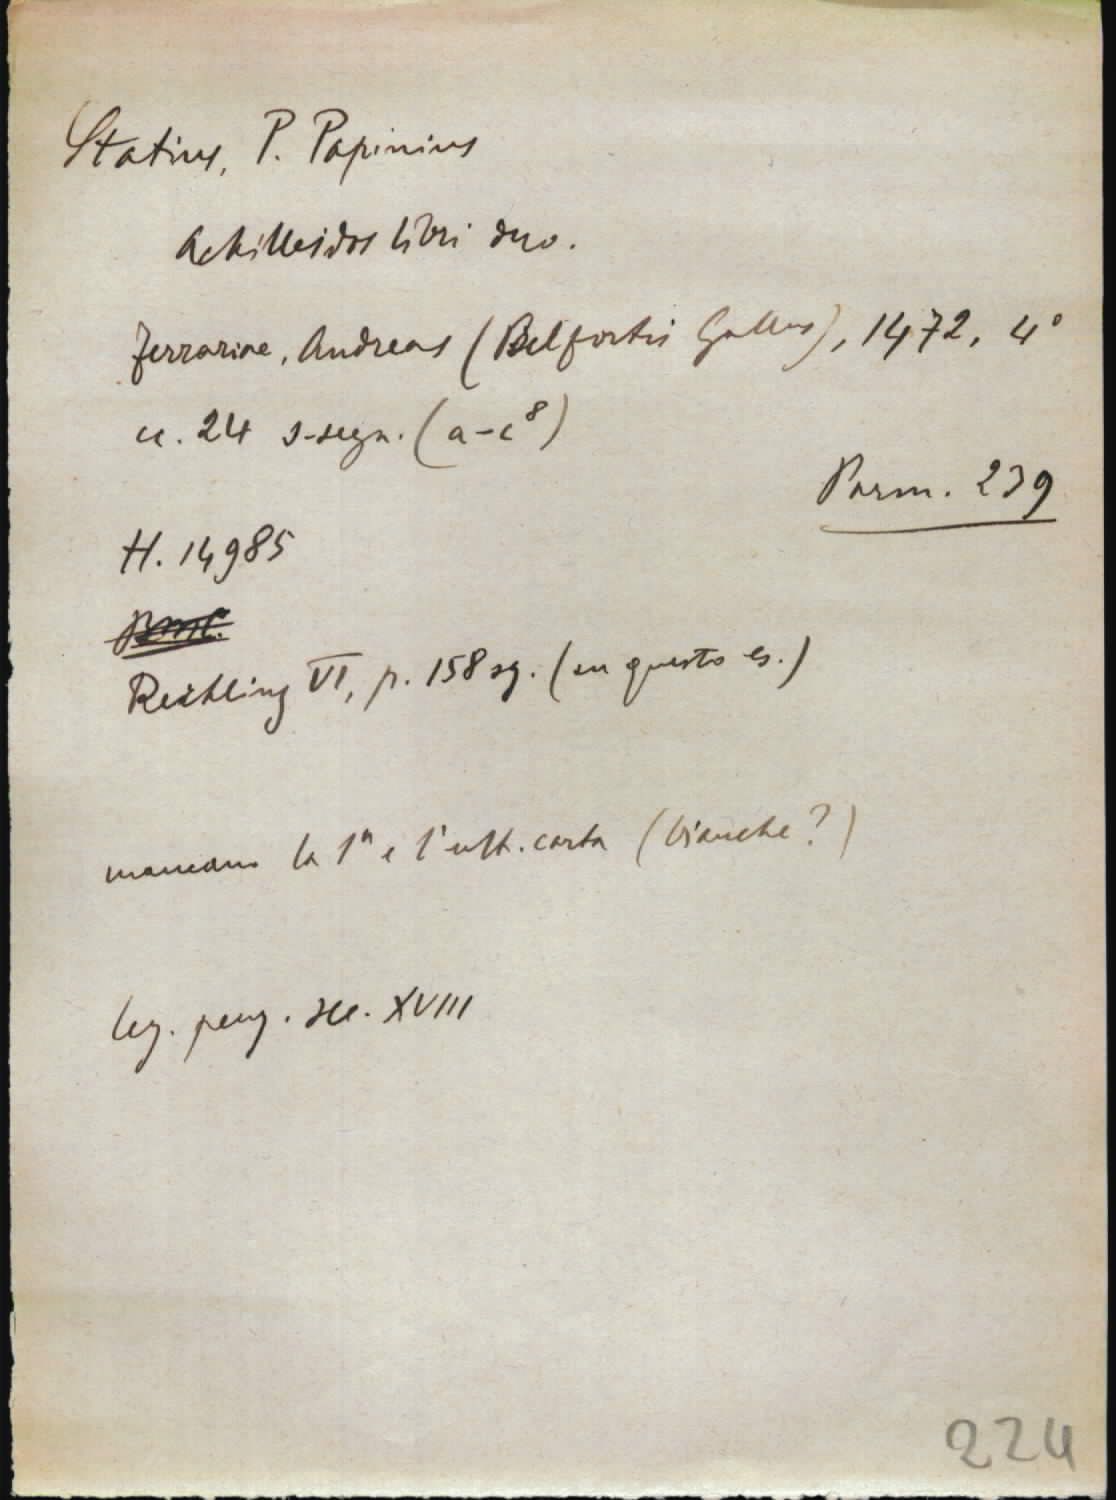 Statius, P. Papinius
Achilleidos libri duo.
Ferrariae, Andreas (Belfortis Gallus), 1472, 4°
cc. 24 s-segn. (a-c⁸)
Parm. 239
H. 14985
BMC.
Reichling VI, p. 158 sg. (su questo es.)
mancano la 1ª e l'ult. carta (bianche?)
leg. perg. sec. XVIII
224